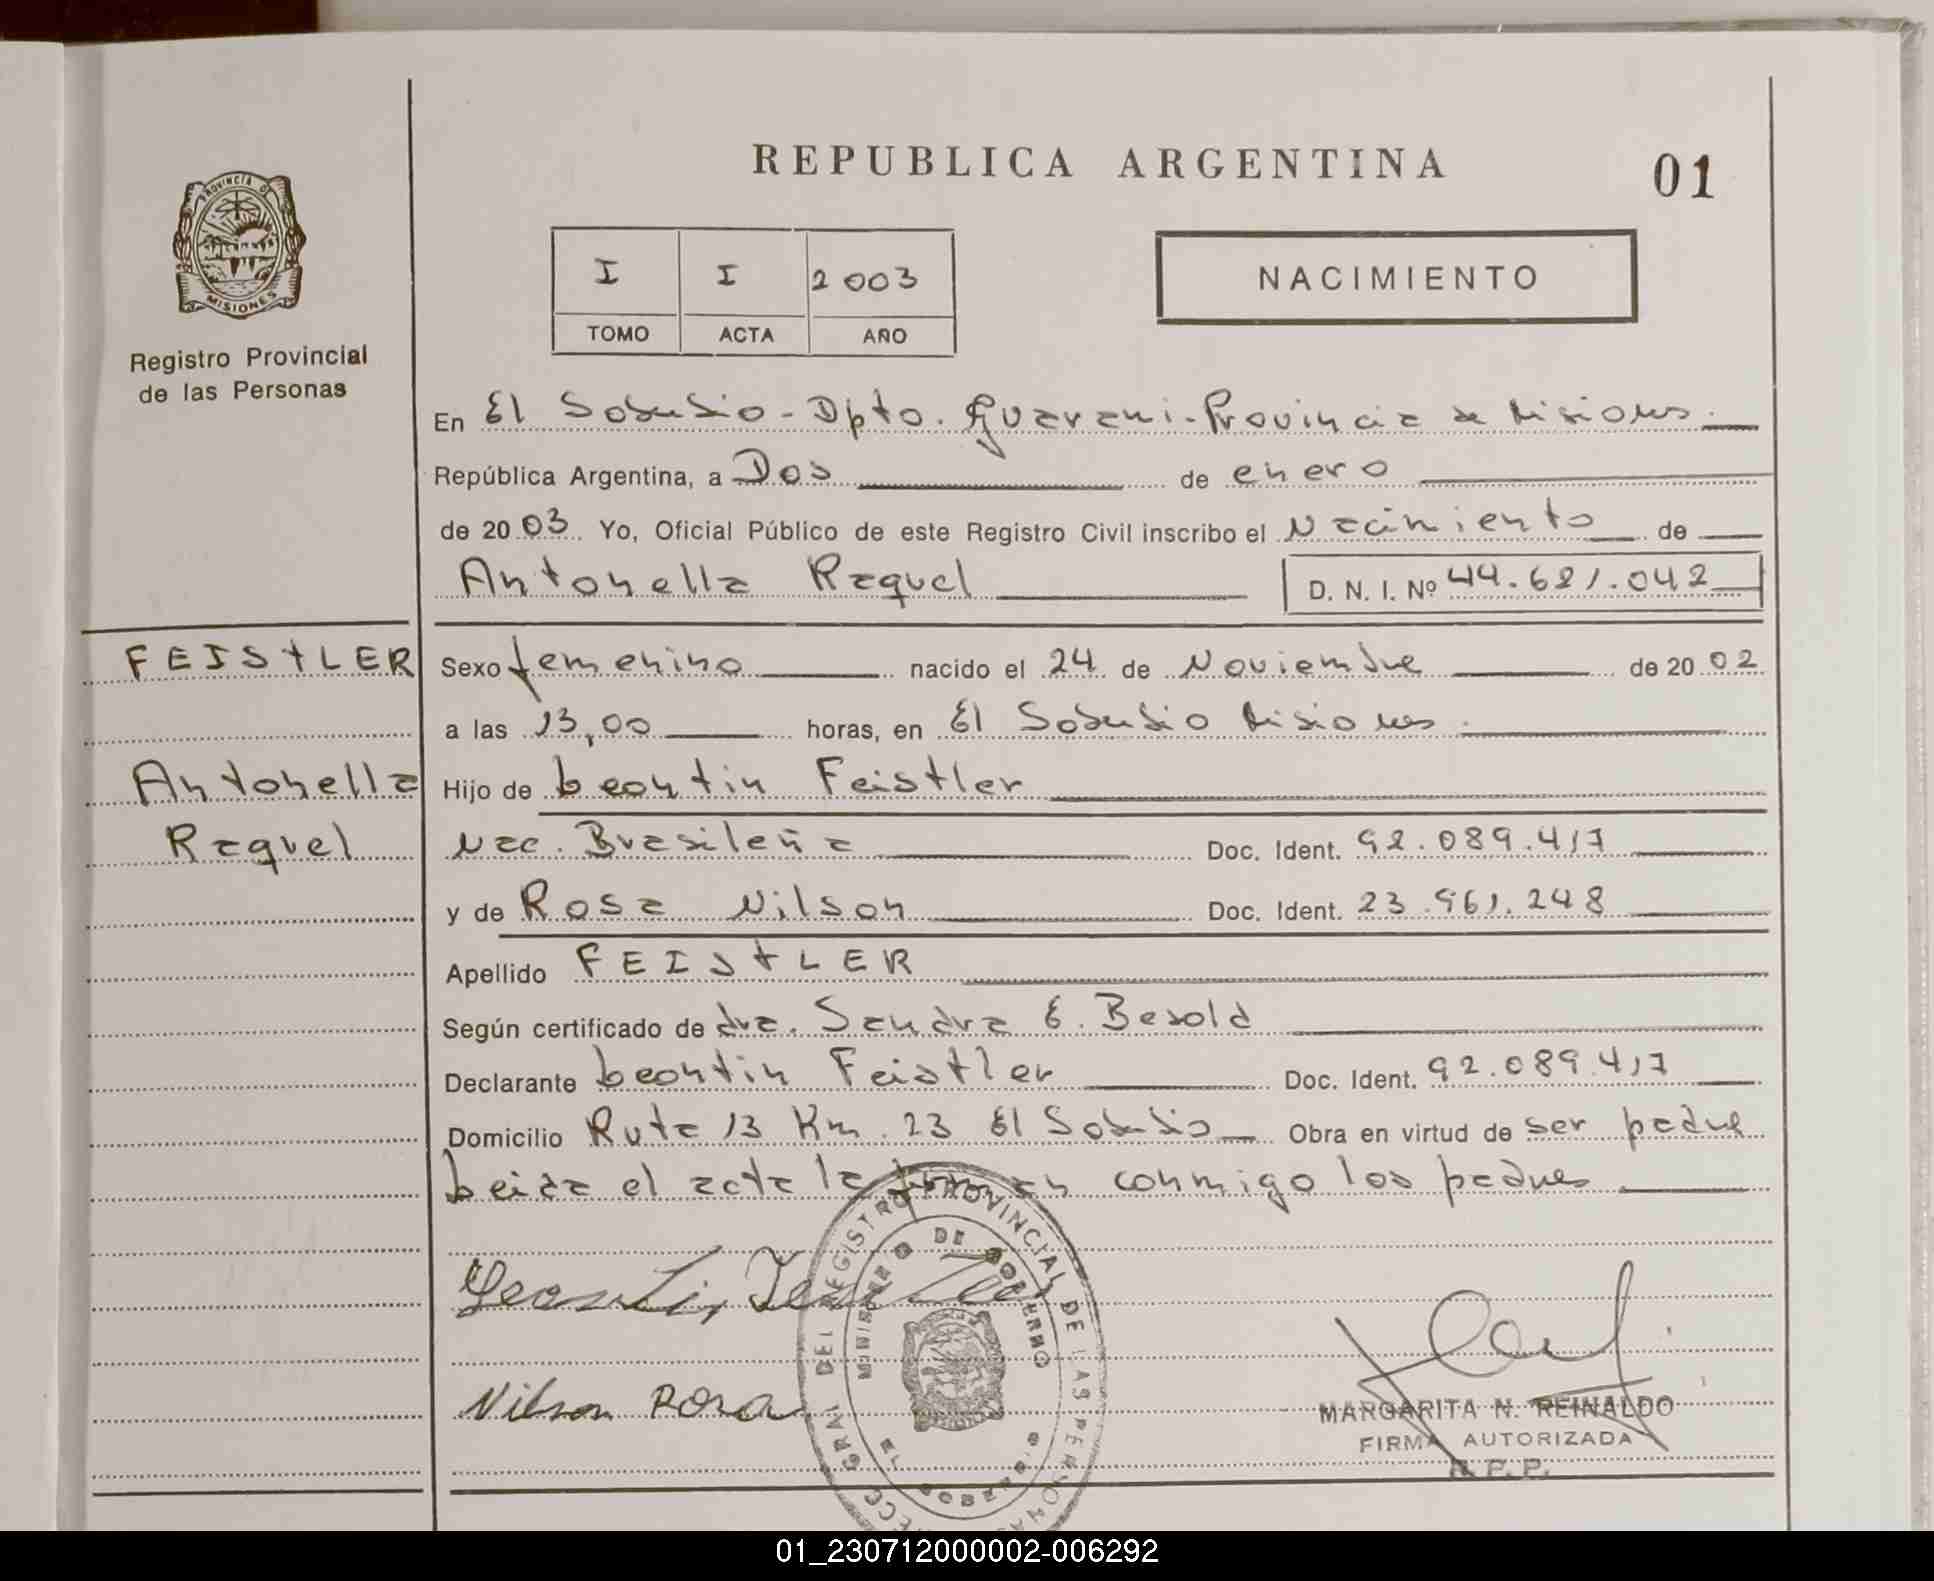 REPUBLICA ARGENTINA
01
PROVINCIA DE
MISIONES
Registro Provincial
de las Personas
I I 2003
TOMO ACTA AÑO
NACIMIENTO
En El Soberbio - Dpto. Guarani - Provincia de Misiones.
República Argentina, a Dos de enero
de 2003 Yo, Oficial Público de este Registro Civil inscribo el Nacimiento de
Antonella Raquel D. N. I. Nº 44.621.042
FEIStLER
Antonella
Raquel
Sexo femenino nacido el 24 de Noviembre de 2002
a las 13,00 horas, en El Soberbio Misiones.
Hijo de Leontin Feistler
Nac. Brasileña Doc. Ident. 92.089.417
y de Rosa Nilson Doc. Ident. 23.961.248
Apellido FEIStLER
Según certificado de dra. Sandra E. Besold
Declarante Leontin Feistler Doc. Ident. 92.089.417
Domicilio Ruta 13 Km. 23 El Soberbio Obra en virtud de ser padre
Leida el acta la firman conmigo los padres
Leontin Feistler
Nilson Rosa
REGISTRO PROVINCIAL DE LAS PERSONAS
MINISTERIO DE GOBIERNO
MARGARITA N. REINALDO
FIRMA AUTORIZADA
R. P. P.
01_230712000002-006292